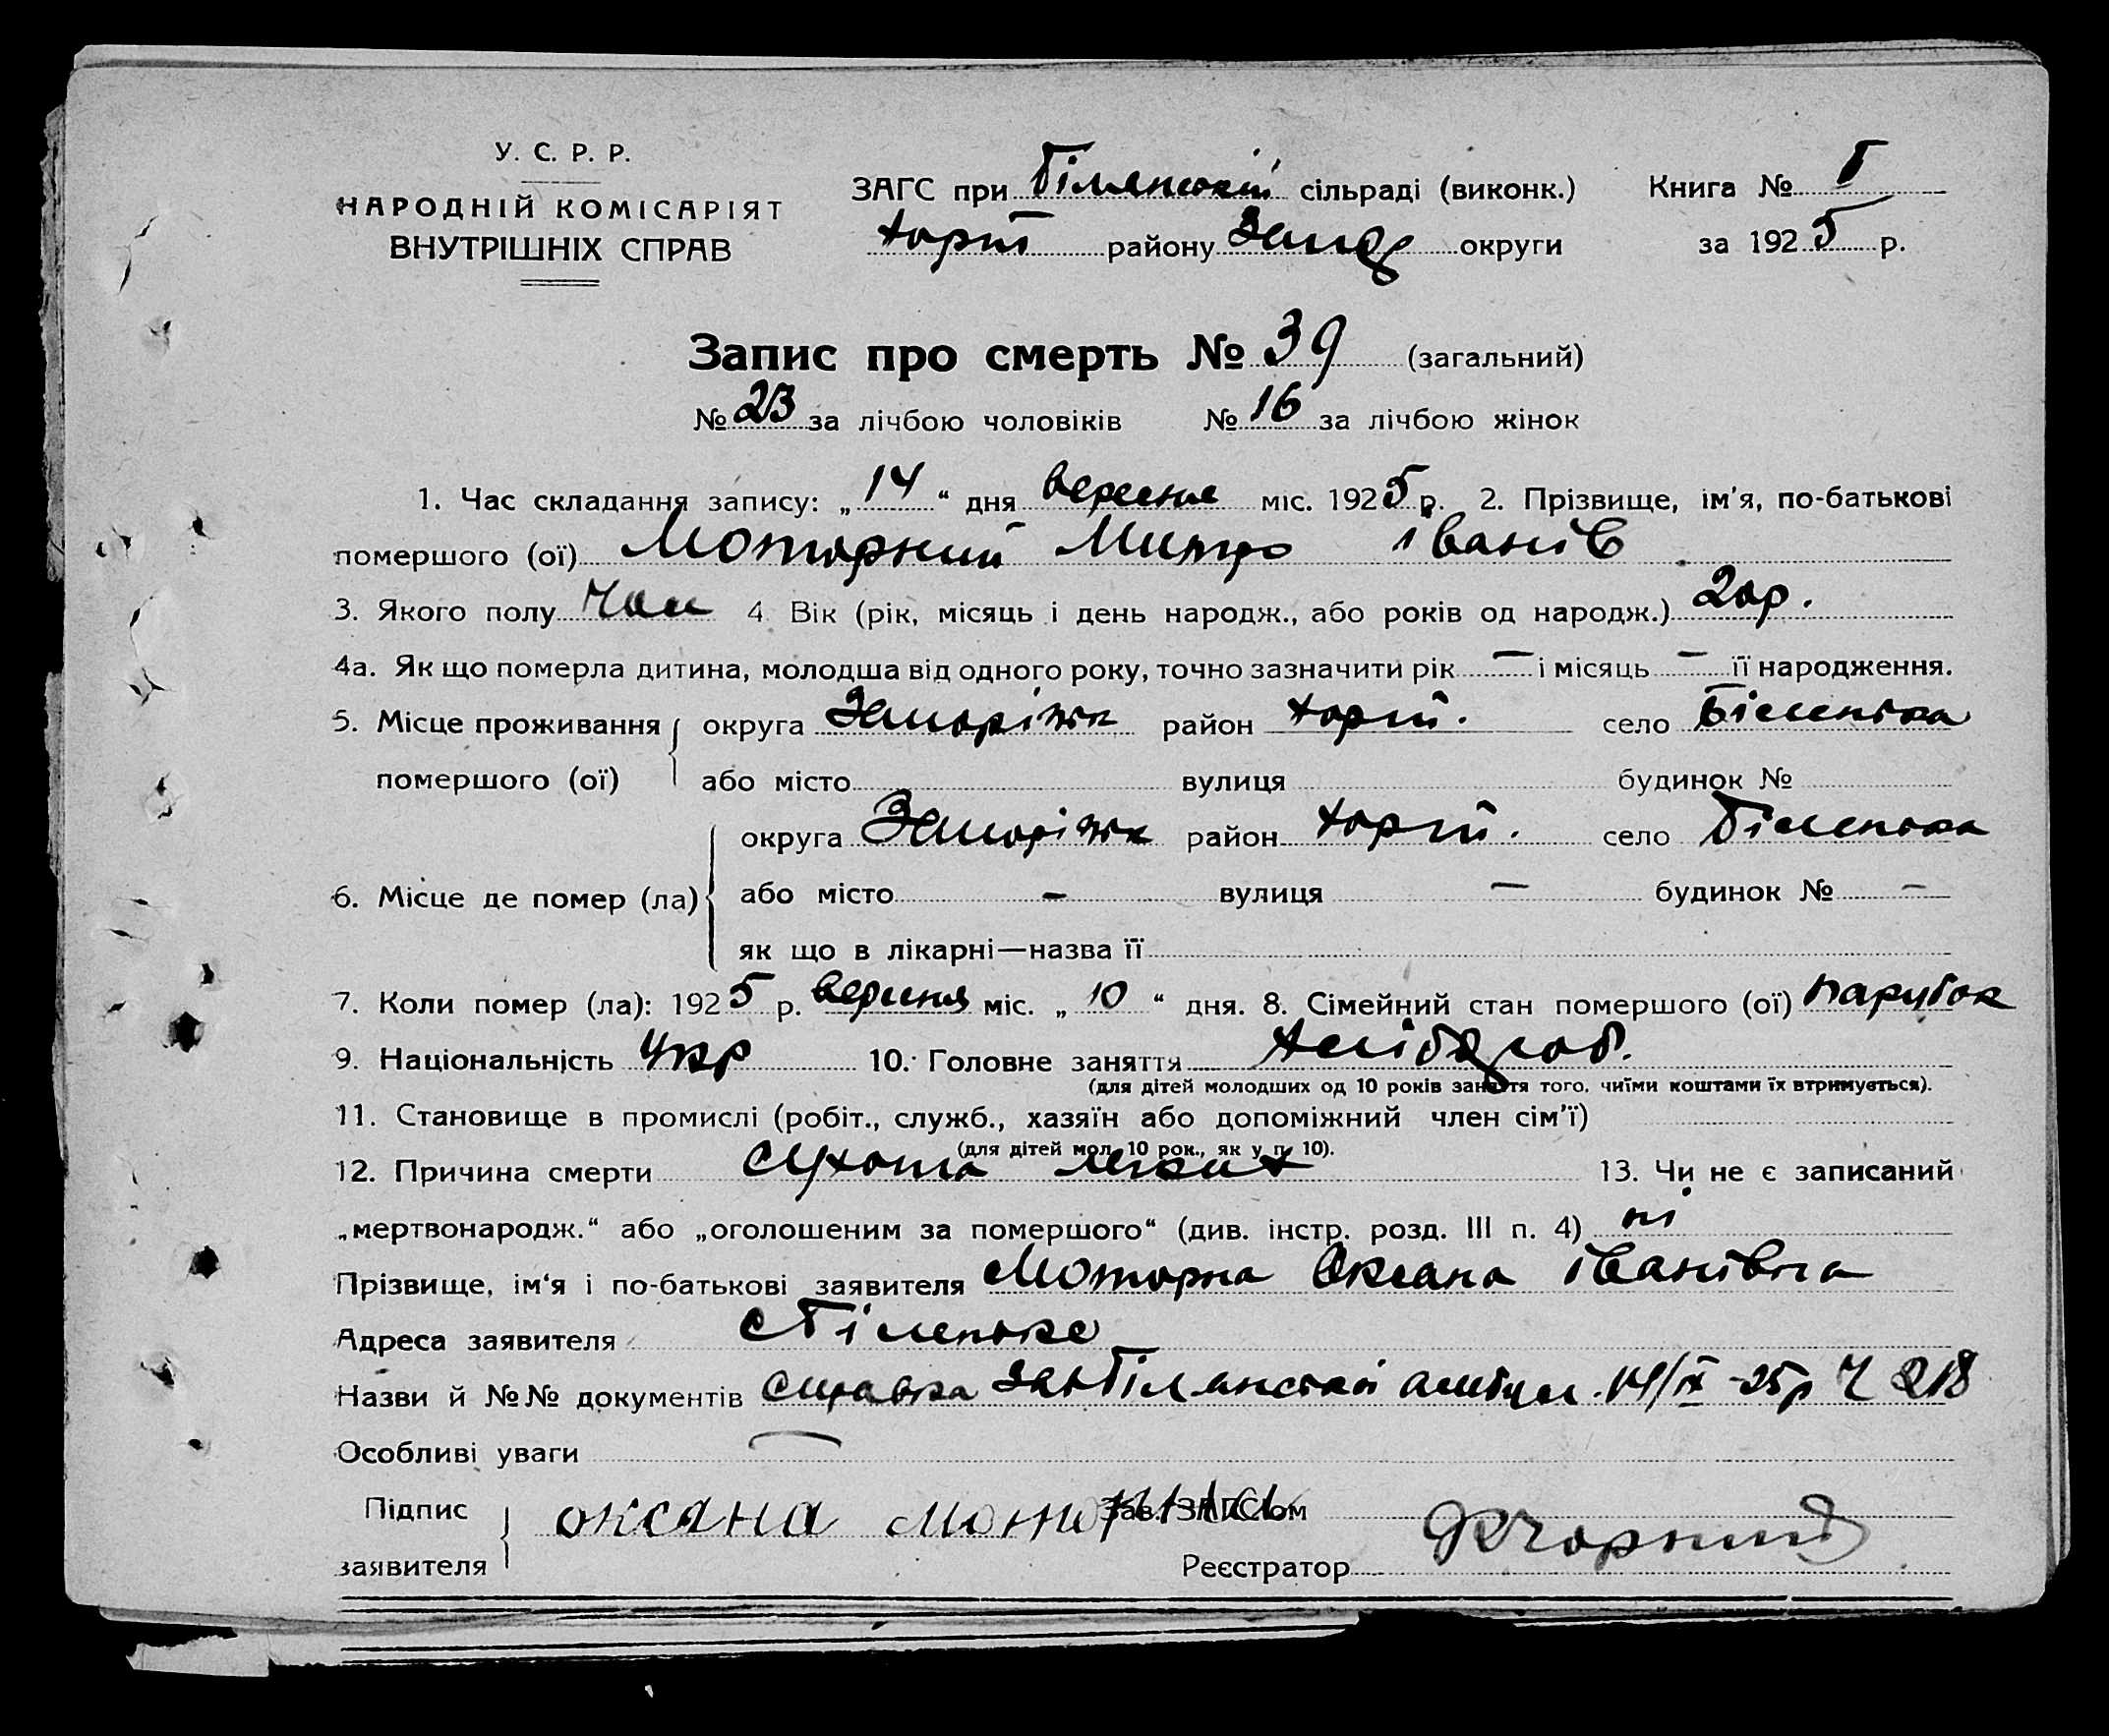 У. С. Р. Р.
НАРОДНІЙ КОМІСАРІЯТ
ВНУТРІШНІХ СПРАВ
ЗАГС при Білянській сільраді (виконк.)
Хорт району Запор округи
Книга № I
за 1925 р.
Запис про смерть № 39 (загальний)
№ 23 за лічбою чоловіків № 16 за лічбою жінок
1. Час складання запису: „14“ дня вересня міс. 1925 р. 2. Прізвище, ім'я, по-батькові
помершого (ої) Моторний Митро Іванів
3. Якого полу Чол 4 Вік (рік, місяць і день народж., або років од народж.) 20р.
4а. Як що померла дитина, молодша від одного року, точно зазначити рік — і місяць — її народження.
5. Місце проживання помершого (ої) округа Запоріжк район Хорт. село Біленька
або місто вулиця будинок №
6. Місце де помер (ла) округа Запоріжк район Хорт. село Біленька
або місто — вулиця — будинок № —
як що в лікарні—назва її
7. Коли помер (ла): 1925 р. вересня міс. „10“ дня. 8. Сімейний стан помершого (ої) парубок
9. Національність Укр 10. Головне заняття Хлібороб.
(для дітей молодших од 10 років заняття того, чиїми коштами їх втримується).
11. Становище в промислі (робіт., служб., хазяїн або допоміжний член сім'ї)
(для дітей мол. 10 рок., як у п. 10).
12. Причина смерти Сухота легких 13. Чи не є записаний
„мертвонародж.“ або „оголошеним за помершого“ (див. інстр. розд. III п. 4) ні
Прізвище, ім'я і по-батькові заявителя Моторна Оксана Іванівна
Адреса заявителя с Біленьке
Назви й №№ документів Справка Зав Білянської амбул. 14/IX-25р Ч 218
Особливі уваги —
Підпис заявителя оксана моторная
Зав. ЗАГСом
Реєстратор Чорний